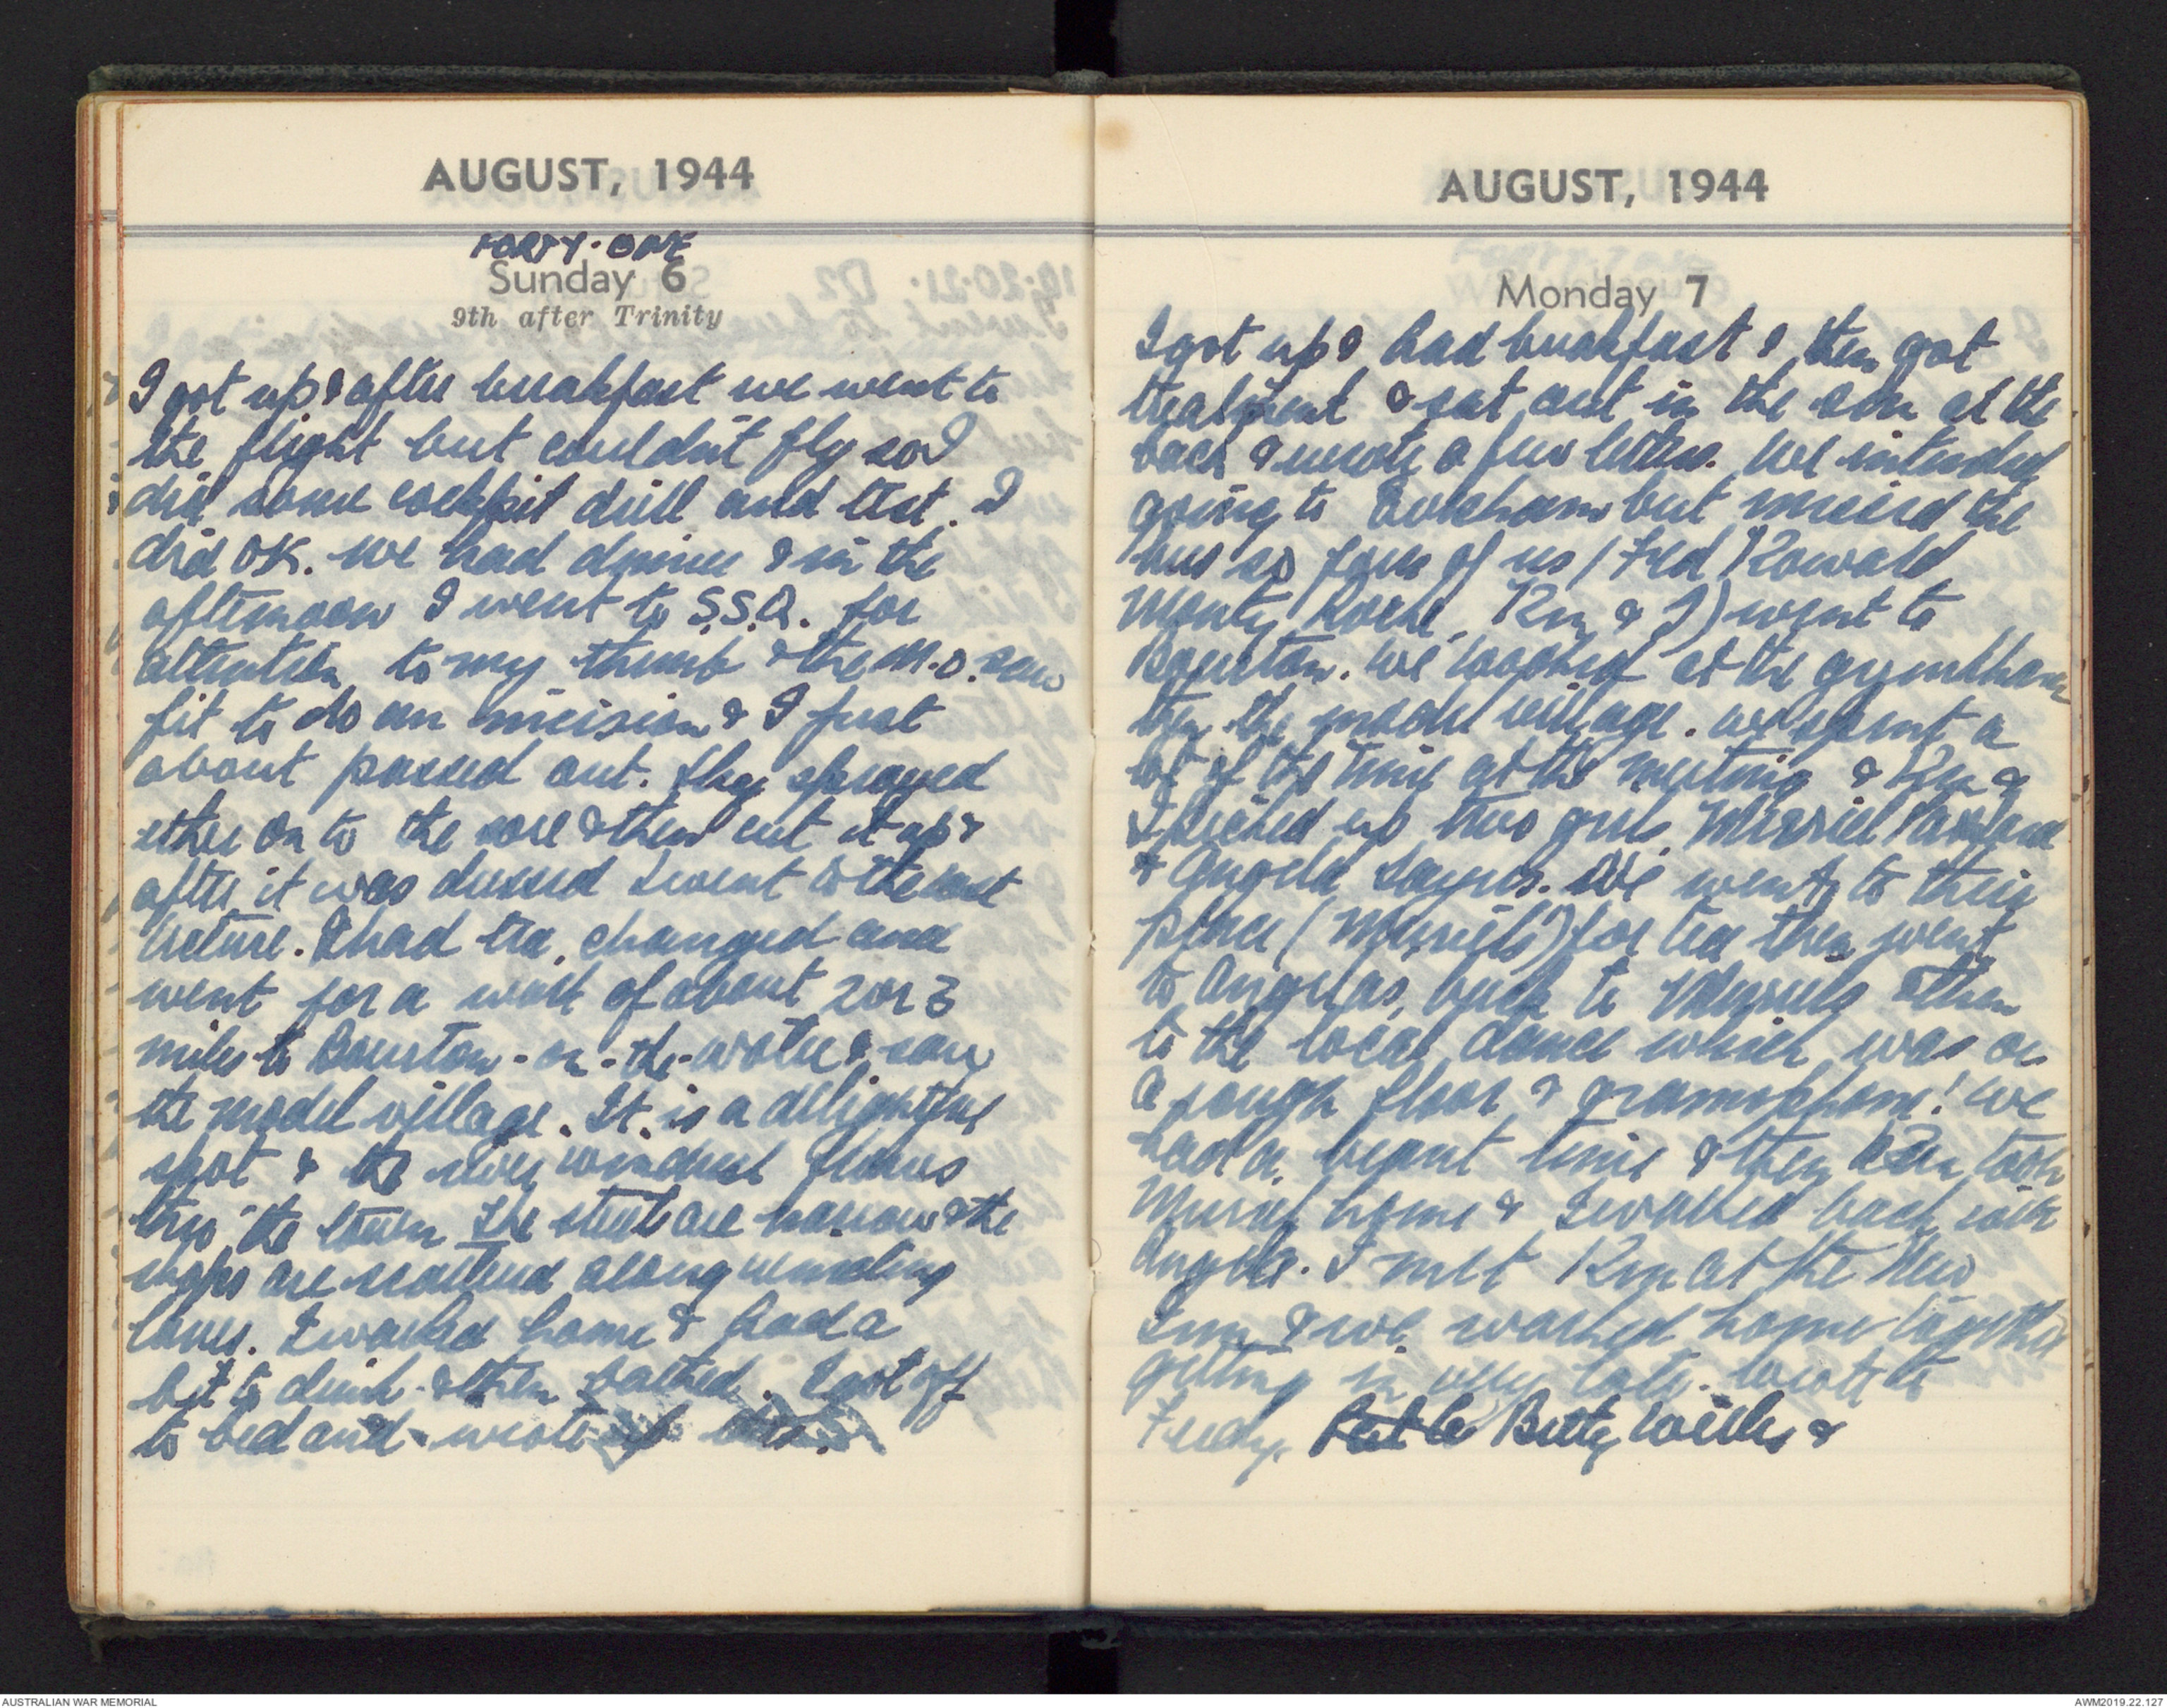 AUGUST, 1944
FORTY-ONE
Sunday 6
9th after Trinity
I got up & after breakfast we went to
the flight but couldn't fly so I
did some cockpit drill and test. I
did OK. We had dinner & in the
afternoon I went to S.S.Q. for
attention to my thumb & the M.O. saw
fit to do an incision & I just
about passed out. They sprayed
ether on to the sore & then cut it up &
after it was dressed I went to the last
lecture. I had tea, changed and
went for a walk of about 2 or 3
miles to Bourton-on-the-water & saw
the model village. It is a delightful
spot & the river windrush flows
thro' the town. The streets are narrow & the
shops are scattered along winding
lanes. I walked home & had a
bit to drink & then bathed. I got off
to bed and wrote up this.
AUGUST, 1944
Monday 7
I got up & had breakfast & then got
treatment & sat out in the sun at the
back & wrote a few letters. We intended
going to Evesham but missed the
bus so four of us (Fred Kowald
Monty Ken & I) went to
Bourton. We looked at the gymkhana
then the model village. We spent a
lot of the time at the meeting & Ken &
I picked up two girls, Muriel
& Angela Sayers. We went to their
place (Muriel's) for tea then went
to Angelas, back to Muriels & then
to the local dance which was on
a rough floor & gramophone! We
had a decent time & then Ken took
Muriel home & I walked back with
Angela. I met Ken at the New
Inn & we walked home together
getting in very late. Wrote to
Betty Wilks &
AUSTRALIAN WAR MEMORIAL
AWM2019.22.127